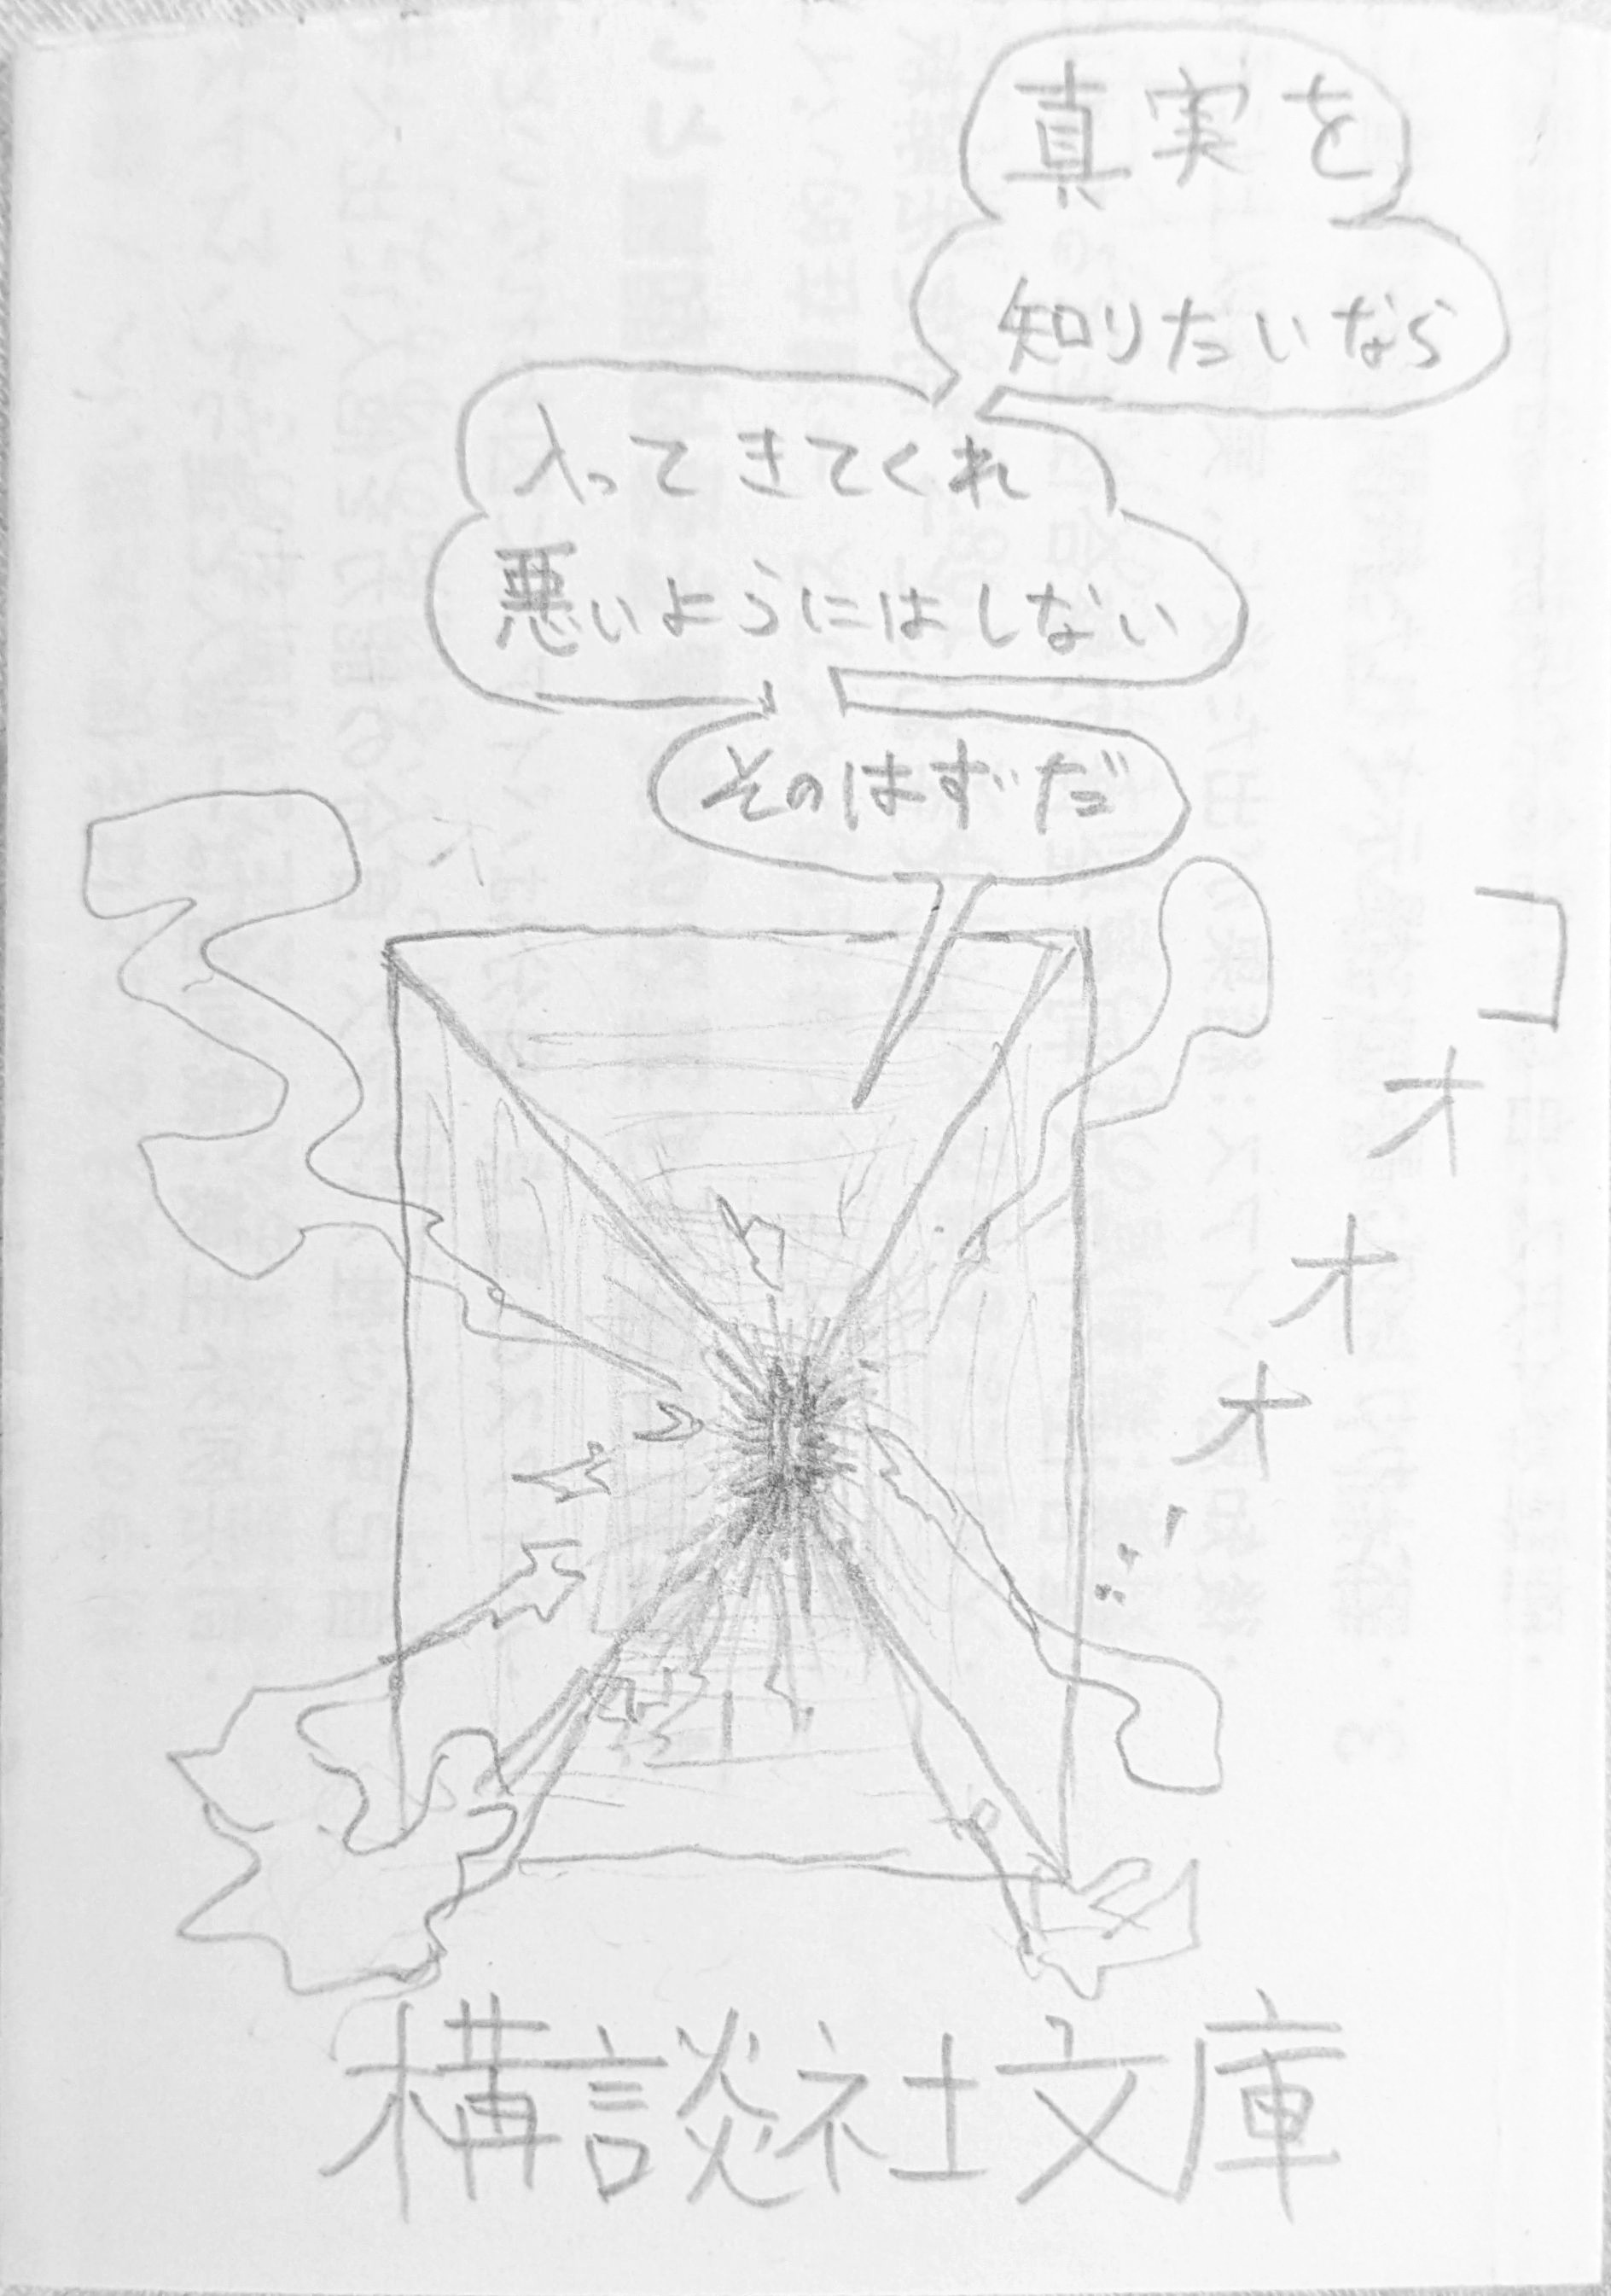 真実を
知りたいなら
入ってきてくれ
悪いようにはしない
そのはずだ
コオオオ…
構談社文庫